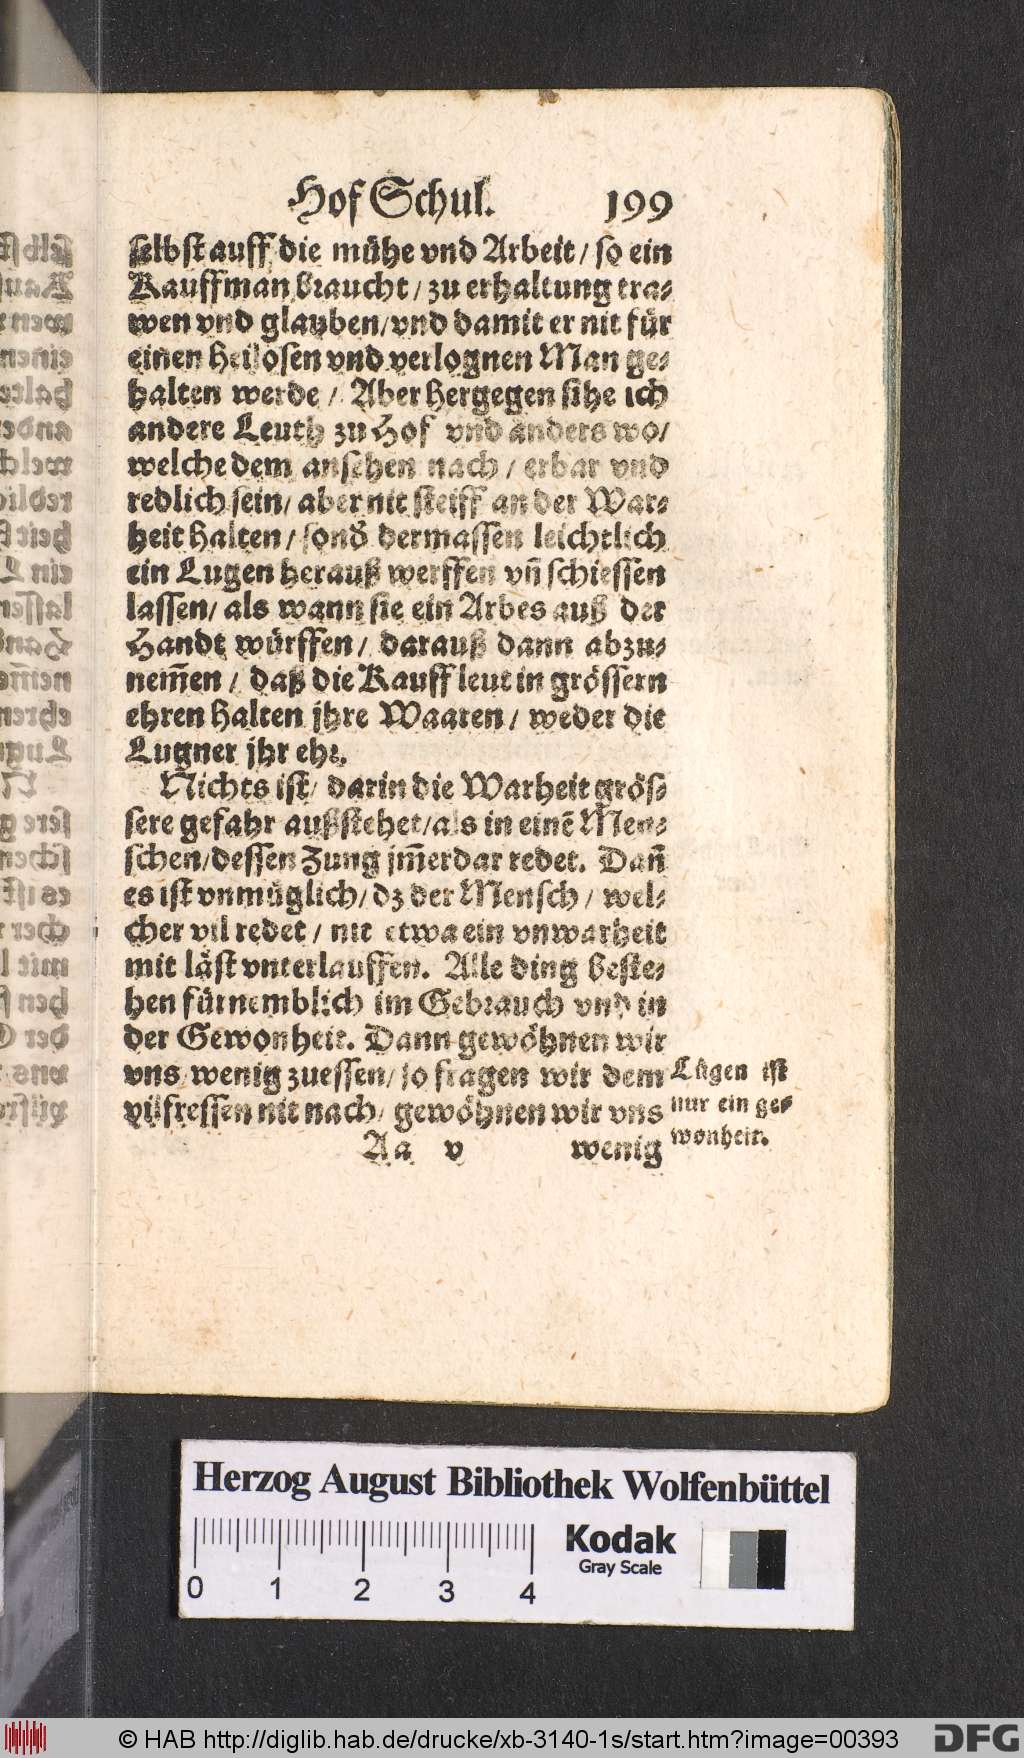 Hof Schul. 199
selbst auff die mühe vnd Arbeit / so ein
Kauffman braucht / zu erhaltung tra⸗
wen vnd glauben / vnd damit er nit für
einen heilosen vnd verlognen Man ge⸗
halten werde / Aber hergegen sihe ich
andere Leuth zu Hof vnd anders wo /
welche dem ansehen nach / erbar vnd
redlich sein / aber nit steiff an der War⸗
heit halten / sond̕ dermassen leichtlich
ein Lugen herauß werffen vn̄ schiessen
lassen / als wann sie ein Arbes auß der
Handt würffen / darauß dann abzu⸗
nem̄en / daß die Kauffleut in grössern
ehren halten jhre Waaren / weder die
Lugner jhr ehr.
Nichts ist / darin die Warheit grös⸗
sere gefahr außstehet / als in einē Men⸗
schen / dessen Zung jm̄erdar redet. Dan̄
es ist vnmüglich / dz der Mensch / wel⸗
cher vil redet / nit etwa ein vnwarheit
mit läst vnterlauffen. Alle ding beste⸗
hen fürnemblich im Gebrauch vnd in
der Gewonheit. Dann gewöhnen wir
vns wenig zuessen / so fragen wir dem
vilfressen nit nach / gewöhnen wir vns
Aa v wenig
Lügen ist
nur ein ge⸗
wonheit.
Herzog August Bibliothek Wolfenbüttel
Kodak
Gray Scale
0 1 2 3 4
© HAB http://diglib.hab.de/drucke/xb-3140-1s/start.htm?image=00393
DFG